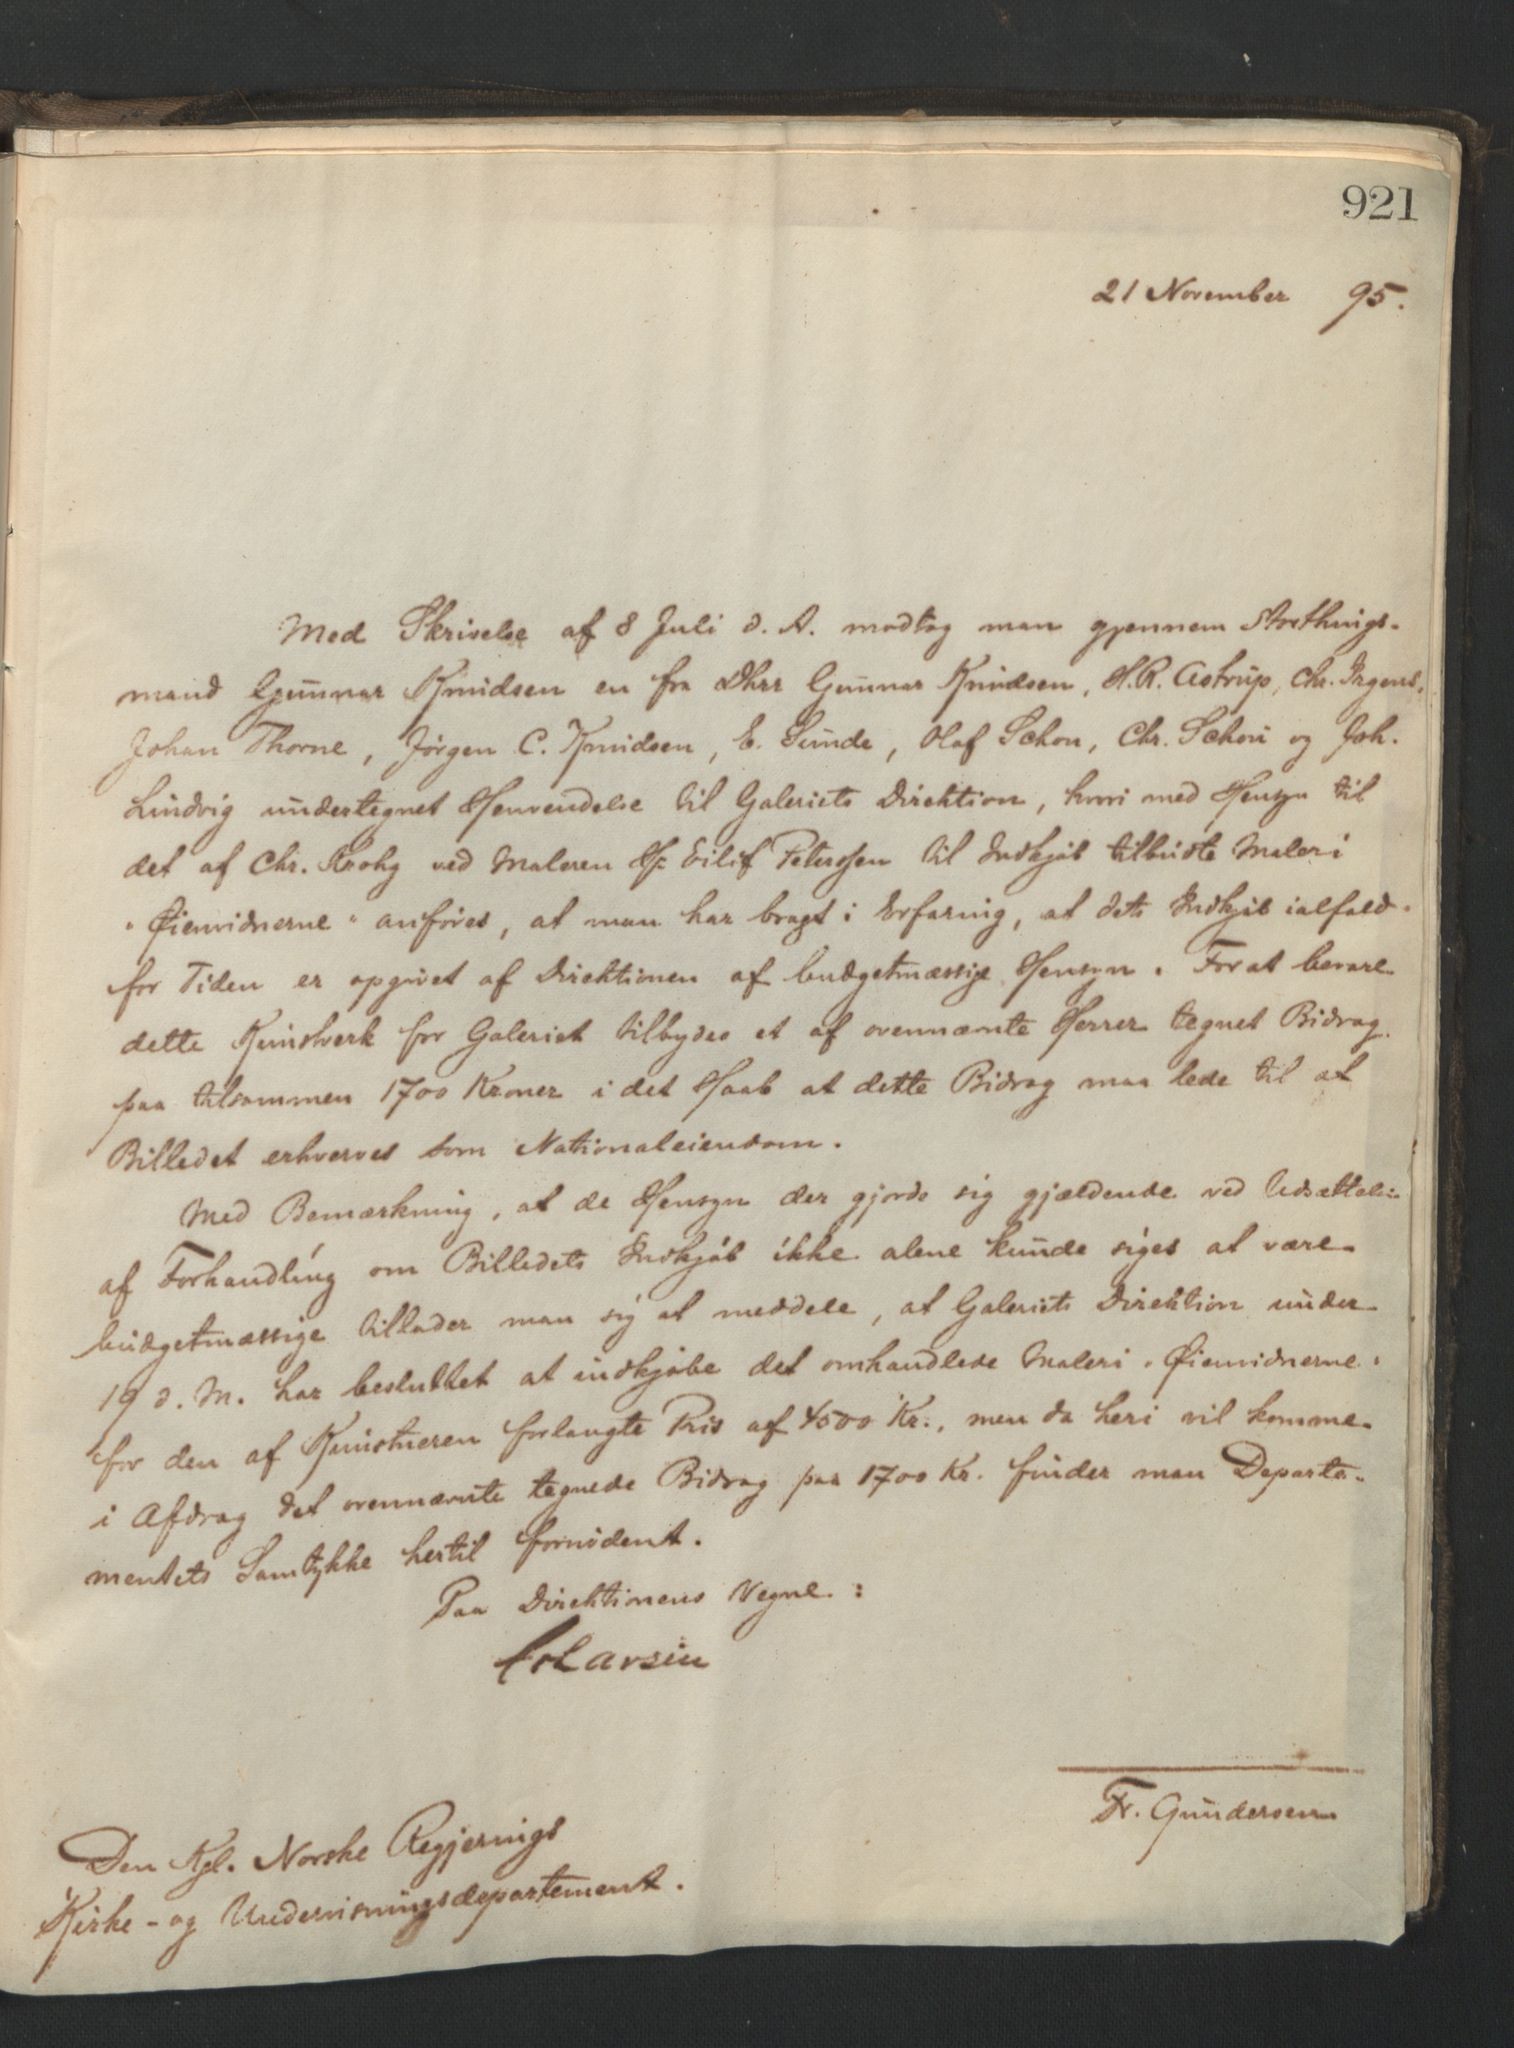 921
21 November 95.
Med Skrivelse af 8 Juli d. A. modtog man gjennem Storthings-
mand Gunnar Knudsen en fra Dhrr Gunnar Knudsen, H. R. Astrup, Chr. Irgens,
Johan Thorne, Jörgen C. Knudsen, E. Sunde, Olaf Schou, Chr. Schou og Joh.
Lindvig undertegnet Henvendelse til Galeriets Direktion, hvori med Hensyn til
det af Chr. Krohg ved Maleren Hr Eilif Peterssen til Indkjöb tilbudte Maleri
"Öienvidnerne" anföres, at man har bragt i Erfaring, at dets Indkjöb ialfald
for Tiden er opgivet af Direktionen af budgetmæssige Hensyn. For at bevare
dette Kunstverk for Galeriet tilbydes et af ovennævnte Herrer tegnet Bidrag
paa tilsammen 1700 Kroner i det Haab at dette Bidrag maa lede til at
Billedet erhverves som Nationaleiendom.
Med Bemærkning, at de Hensyn der gjorde sig gjældende ved Udsættelse
af Forhandling om Billedets Indkjöb ikke alene kunde siges at være
budgetmæssige tillader man sig at meddele, at Galeriets Direktion under
19 d. M. har besluttet at indkjöbe det omhandlede Maleri "Öienvidnerne"
for den af Kunstneren forlangte Pris af 4500 Kr., men da heri vil komme
i Afdrag det ovennævnte tegnede Bidrag paa 1700 Kr. finder man Departe-
mentets Samtykke hertil fornödent.
Paa Direktionens Vegne:
Larsen
Fr. Gundersen
Den Kgl. Norske Regjerings
Kirke- og Undervisningsdepartement.